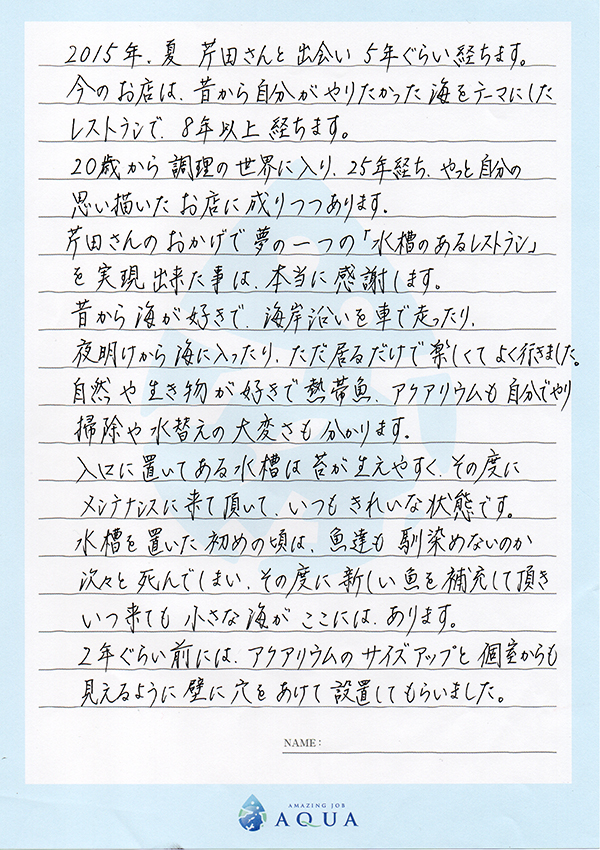 2015年、夏 芹田さんと出会い5年ぐらい経ちます。
今のお店は、昔から自分がやりたかった海をテーマにした
レストランで、8年以上経ちます。
20歳から調理の世界に入り、25年経ち、やっと自分の
思い描いたお店に成りつつあります。
芹田さんのおかげで夢の一つの「水槽のあるレストラン」
を実現出来た事は、本当に感謝します。
昔から海が好きで、海岸沿いを車で走ったり、
夜明けから海に入ったり、ただ居るだけで楽しくてよく行きました。
自然や生き物が好きで熱帯魚、アクアリウムも自分でやり
掃除や水替えの大変さも分かります。
入口に置いてある水槽は苔が生えやすく、その度に
メンテナンスに来て頂いて、いつもきれいな状態です。
水槽を置いた初めの頃は、魚達も馴染めないのか
次々と死んでしまい、その度に新しい魚を補充して頂き
いつ来ても小さな海がここには、あります。
2年ぐらい前には、アクアリウムのサイズアップと個室からも
見えるように壁に穴をあけて設置してもらいました。
NAME:
AMAZING JOB
AQUA